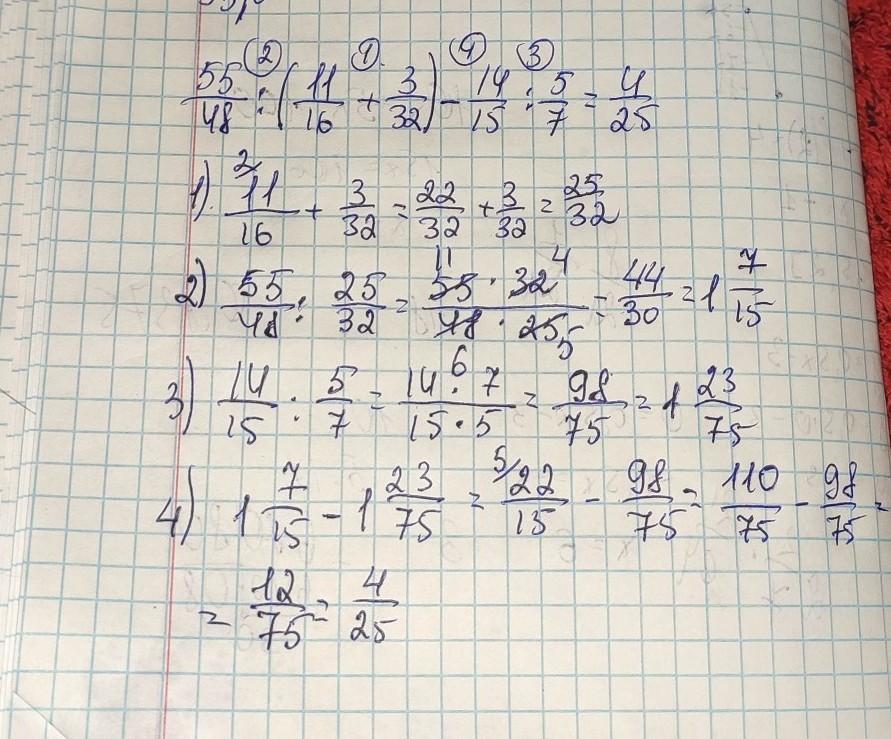 ② ① ④ ③
55/48 : (11/16 + 3/32) - 14/15 : 5/7 = 4/25
1). 2/ 11/16 + 3/32 = 22/32 + 3/32 = 25/32
2) 55/48 : 25/32 = 11 55 · 32 4 / 48 6 · 25 5 = 44/30 = 1 7/15
3) 14/15 : 5/7 = 14 · 7 / 15 · 5 = 98/75 = 1 23/75
4) 1 7/15 - 1 23/75 = 5/ 22/15 - 98/75 = 110/75 - 98/75 =
= 12/75 = 4/25